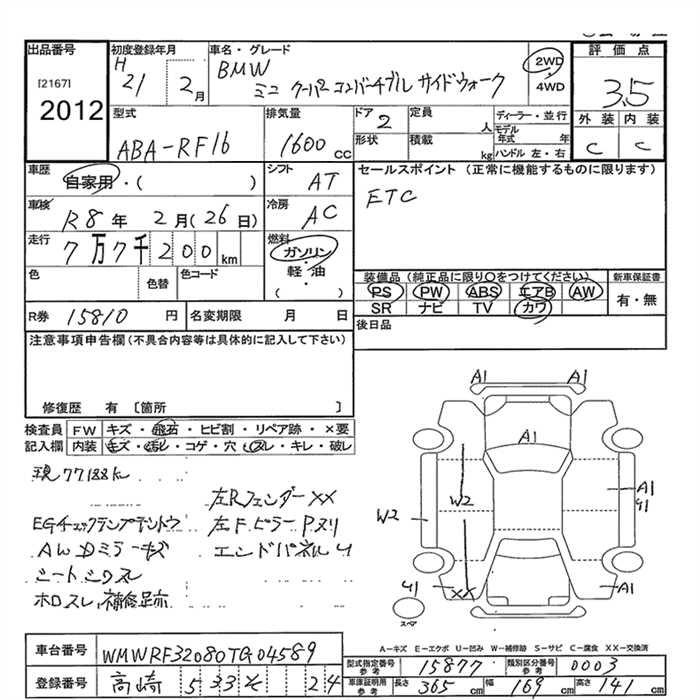 出品番号
[2167]
2012
初度登録年月
H 21 2月
車名・グレード
BMW
ミニ クーパー コンバーチブル サイドウォーク
2WD
・
4WD
評価点
3.5
外装 内装
C C
型式
ABA-RF16
排気量
1600cc
ドア 2
形状
定員 人
積載 kg
ディーラー・並行
モデル年式 年
ハンドル 左・右
車歴
自家用・( )
シフト
AT
セールスポイント (正常に機能するものに限ります)
ETC
車検
R8年 2月(26日)
冷房
AC
走行
7万7千200km
燃料
ガソリン
・
軽・油
・
( )
色
色替
色コード
装備品 (純正品に限り○をつけてください)
PS PW ABS エアB AW
SR ナビ TV カワ
新車保証書
有・無
R券 15810円
名変期限 月 日
後日品
注意事項申告欄 (不具合内容等は具体的に記入して下さい)
修復歴 有 〔箇所 〕
検査員記入欄
FW キズ・飛石・ヒビ割・リペア跡・×要
内装 キズ・汚レ・コゲ・穴・スレ・キレ・破レ
現77188km
左Rフェンダーxx
EGチェックランプテントウ
左FピラーPヌリ
AW Dミラーキズ
エンドパネルU
シートシワスレ
ホロスレ,補修跡
A1 A1
A1
W2
W2
A1
U1
U1
XX
A1
スペア
A-キズ E-エクボ U-凹み W-補修跡 S-サビ C-腐食 XX-交換済
車台番号
WMWRF32080TG04589
型式指定番号 参考
15877
類別区分番号 参考
0003
登録番号
高崎 533 そ 24
車庫証明用 参考
長さ 365cm
幅 169cm
高さ 141cm